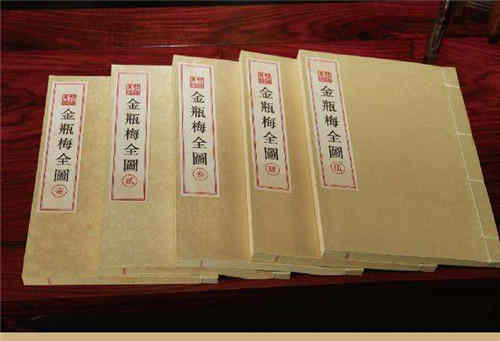 金瓶梅全圖
壹
金瓶梅全圖
貳
金瓶梅全圖
叁
金瓶梅全圖
肆
金瓶梅全圖
伍